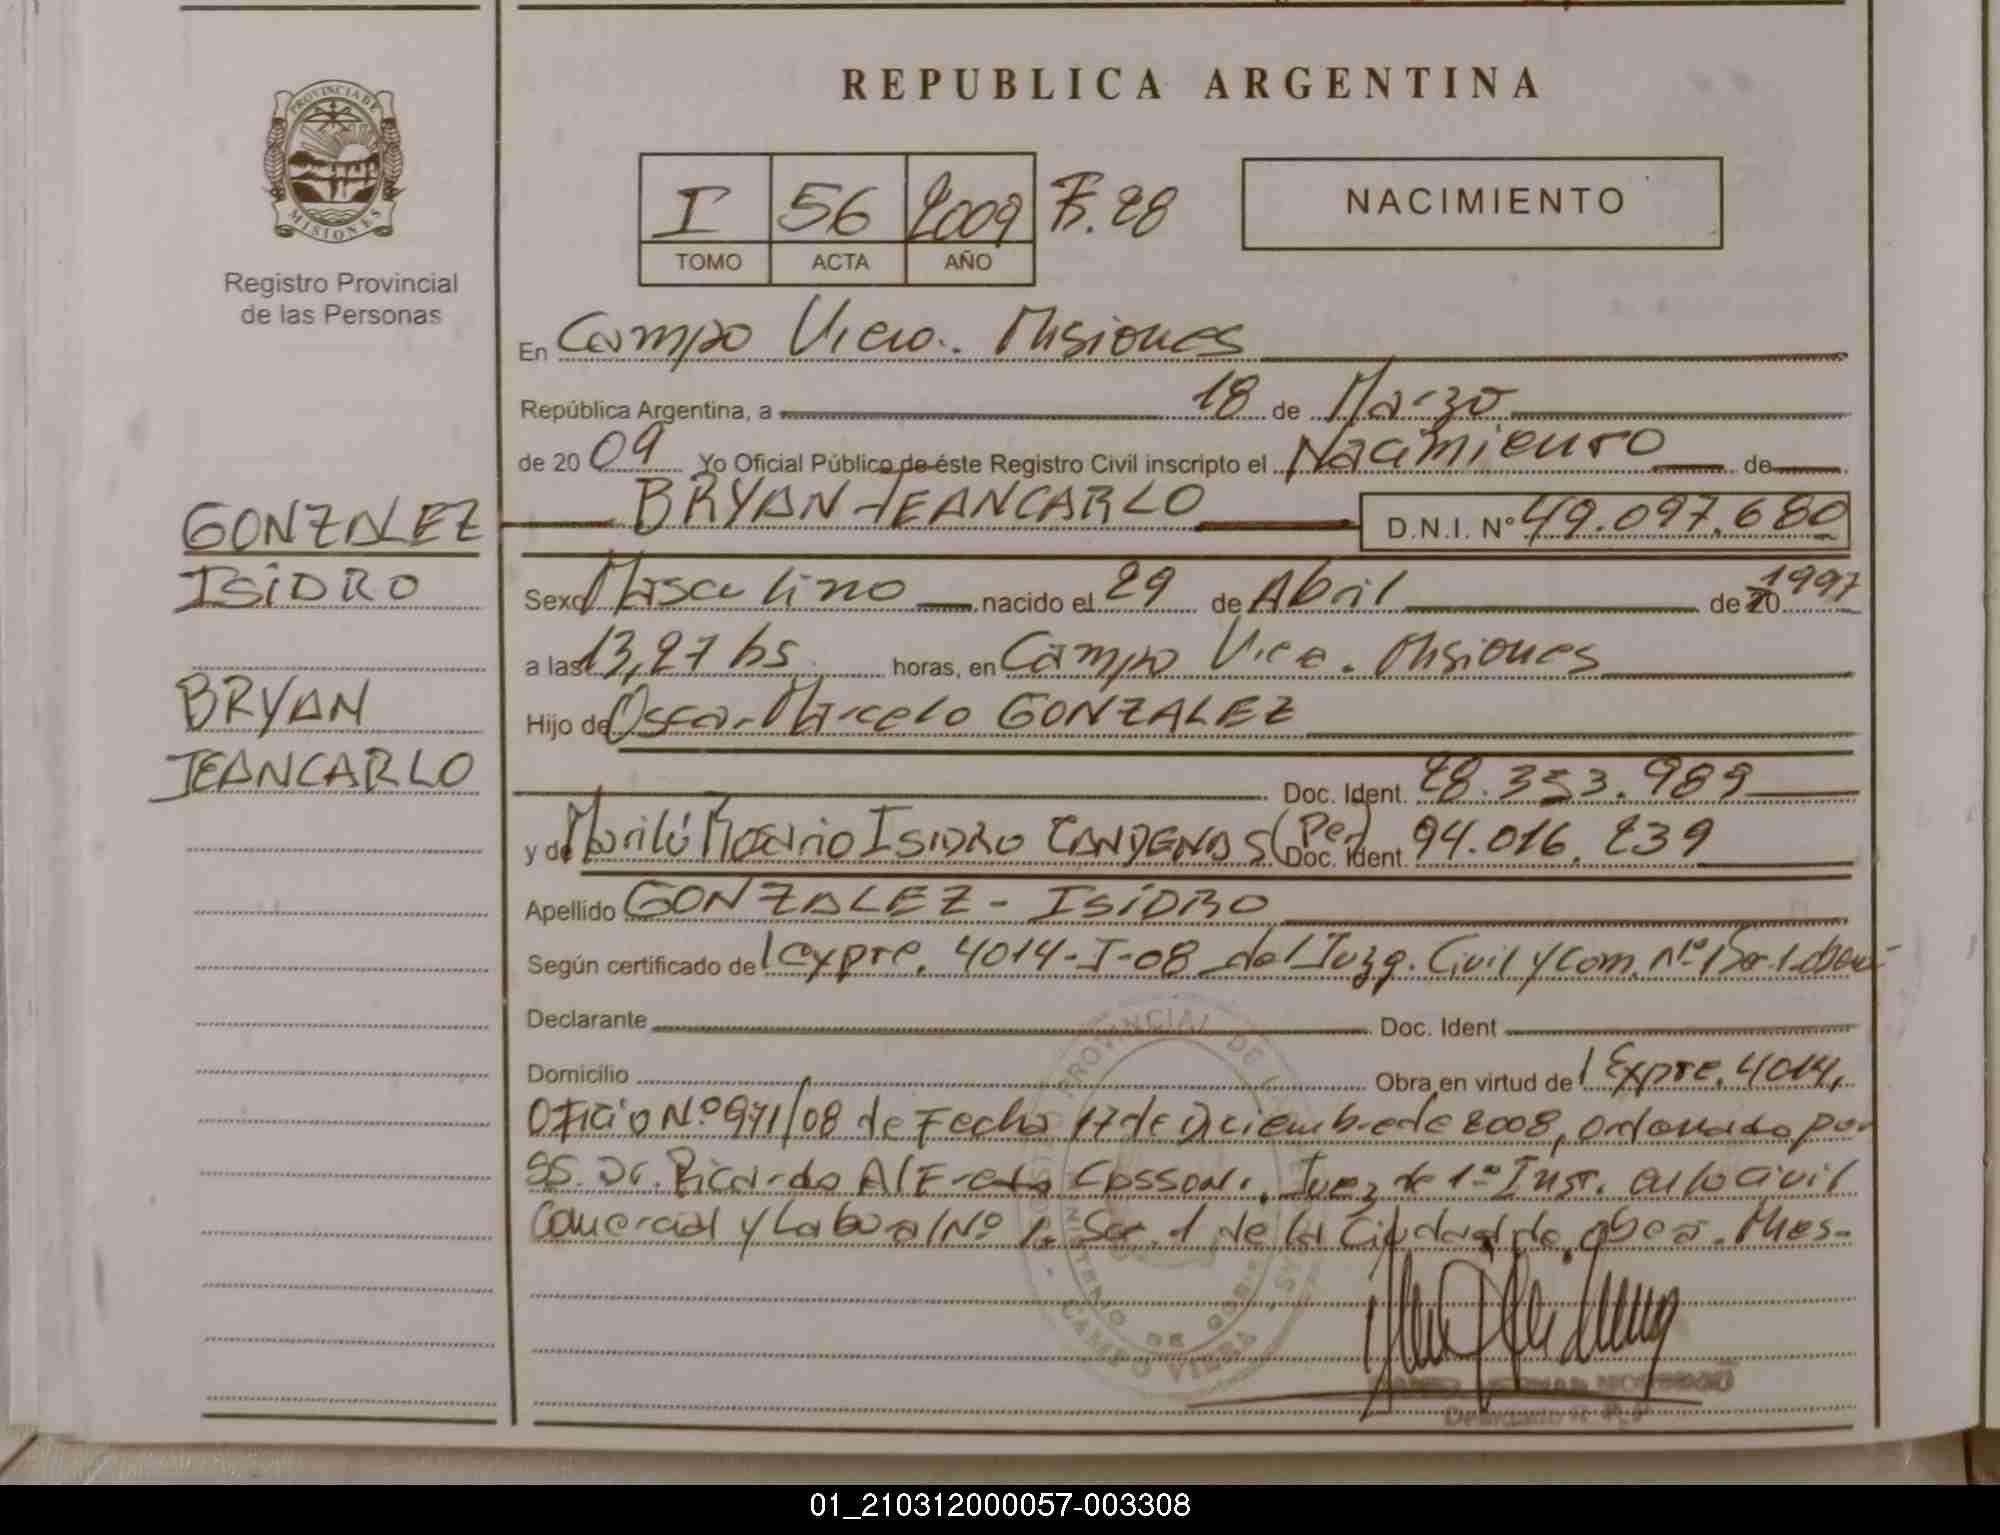 PROVINCIA DE
MISIONES
Registro Provincial
de las Personas
GONZALEZ
ISIDRO
BRYAN
JEANCARLO
REPUBLICA ARGENTINA
I 56 2009 F. 28
TOMO ACTA AÑO
NACIMIENTO
En Campo Viera. Misiones
República Argentina, a 18 de Marzo
de 20 09 Yo Oficial Público de éste Registro Civil inscripto el Nacimiento de
BRYAN JEANCARLO D.N.I. Nº 49.097.680
Sexo Masculino nacido el 29 de Abril de 20 1997
a las 13,27 hs horas, en Campo Viera. Misiones
Hijo de Oscar Marcelo GONZALEZ
Doc. Ident. 28.353.989
y de Marilú Rosario ISIDRO CANDENAS (Per) Doc. Ident. 94.016.239
Apellido GONZALEZ - ISIDRO
Según certificado del expte. 4014-I-08 del Juzg. Civil y Com. Nº 1
Declarante Doc. Ident
Domicilio Obra en virtud del Expte. 4014,
Oficio Nº 971/08 de Fecha 17 de Diciembre de 2008, ordenado por
SS. Dr. Ricardo Alfredo Juez de 1º Inst. en lo Civil
Comercial y Laboral Nº 1. Sec. 1 de la Ciudad de Obera.
CAMPO VIERA
01_210312000057-003308